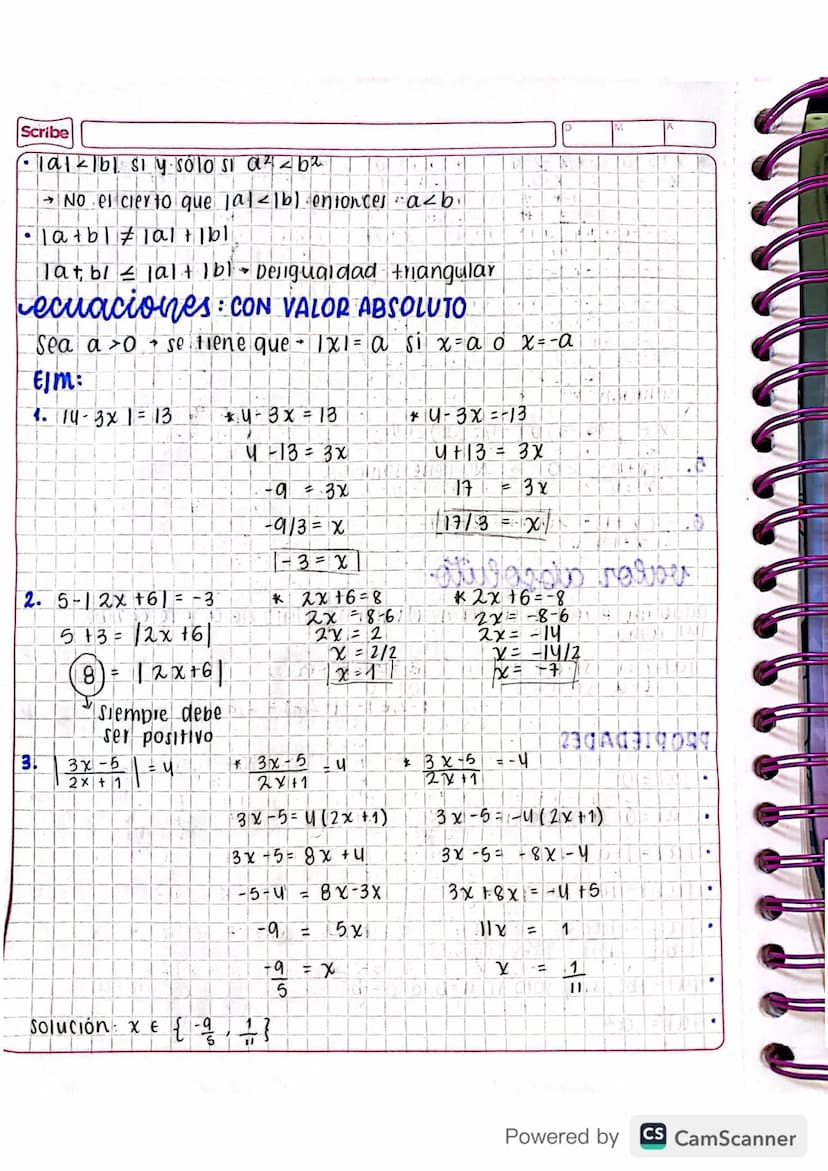 Scribe
D M A
• |a| < |b| si y sólo si a² < b²
→ NO es cierto que |a| < |b| entonces a < b
• |a + b| ≠ |a| + |b|
|a + b| ≤ |a| + |b| → Desigualdad triangular
ecuaciones: CON VALOR ABSOLUTO
Sea a > 0 → se tiene que → |x| = a si x = a ó x = -a
EJM:
1. |4 - 3x| = 13
* 4 - 3x = 13
4 - 13 = 3x
-9 = 3x
-9/3 = x
-3 = x
* 4 - 3x = -13
4 + 13 = 3x
17 = 3x
17/3 = x
2. 5 - |2x + 6| = -3
5 + 3 = |2x + 6|
8 = |2x + 6|
Siempre debe
ser positivo
* 2x + 6 = 8
2x = 8 - 6
2x = 2
x = 2/2
x = 1
* 2x + 6 = -8
2x = -8 - 6
2x = -14
x = -14/2
x = -7
3. |(3x - 5)/(2x + 1)| = 4
* (3x - 5)/(2x + 1) = 4
3x - 5 = 4(2x + 1)
3x - 5 = 8x + 4
-5 - 4 = 8x - 3x
-9 = 5x
-9/5 = x
* (3x - 5)/(2x + 1) = -4
3x - 5 = -4(2x + 1)
3x - 5 = -8x - 4
3x + 8x = -4 + 5
11x = 1
x = 1/11
Solución: x ∈ {-9/5, 1/11}
valor absoluto
PROPIEDADES
5.
6.
Powered by CS CamScanner